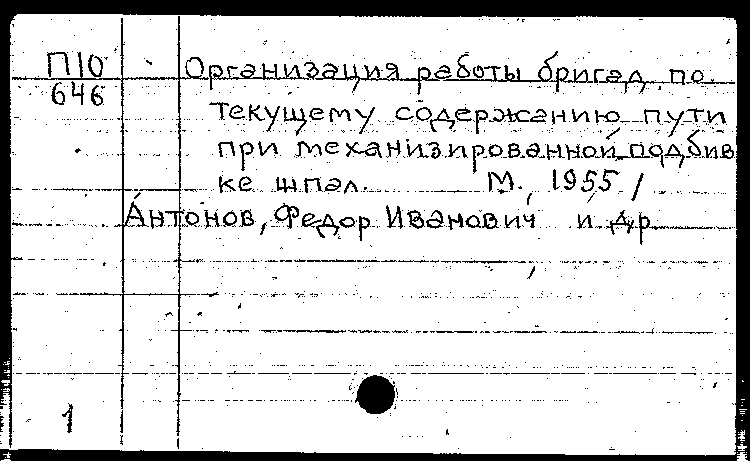 П10
646
Организация работы бригад по
текущему содержанию пути
при механизированной подбив
ке шпал. М., 1955 /
Антонов, Федор Иванович и др
1